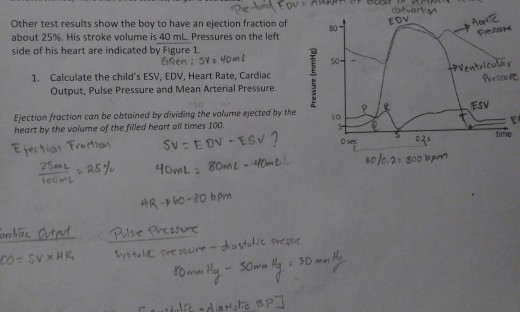 Other test results show the boy to have an ejection fraction of
about 25%. His stroke volume is 40 mL. Pressures on the left
side of his heart are indicated by Figure 1.
Given: SV = 40ml
1. Calculate the child's ESV, EDV, Heart Rate, Cardiac
Output, Pulse Pressure and Mean Arterial Pressure.
Ejection fraction can be obtained by dividing the volume ejected by the
heart by the volume of the filled heart all times 100.
Ejection Fraction
SV = EDV - ESV ?
25mL
100mL
= 25%
40mL = 80mL - 40mL
HR → 60-80 bpm
Output
CO = SV x HR
Pulse Pressure
Systolic pressure - diastolic pressure
80mm Hg - 50mm Hg = 30 mm Hg
diastolic BP]
EDV
Aortic
Pressure
Ventricular
Pressure
ESV
Pressure (mmHg)
80
50
10
5
P
R
Q
S
0 sec
0.2s
time
60/0.2 = 300 bpm